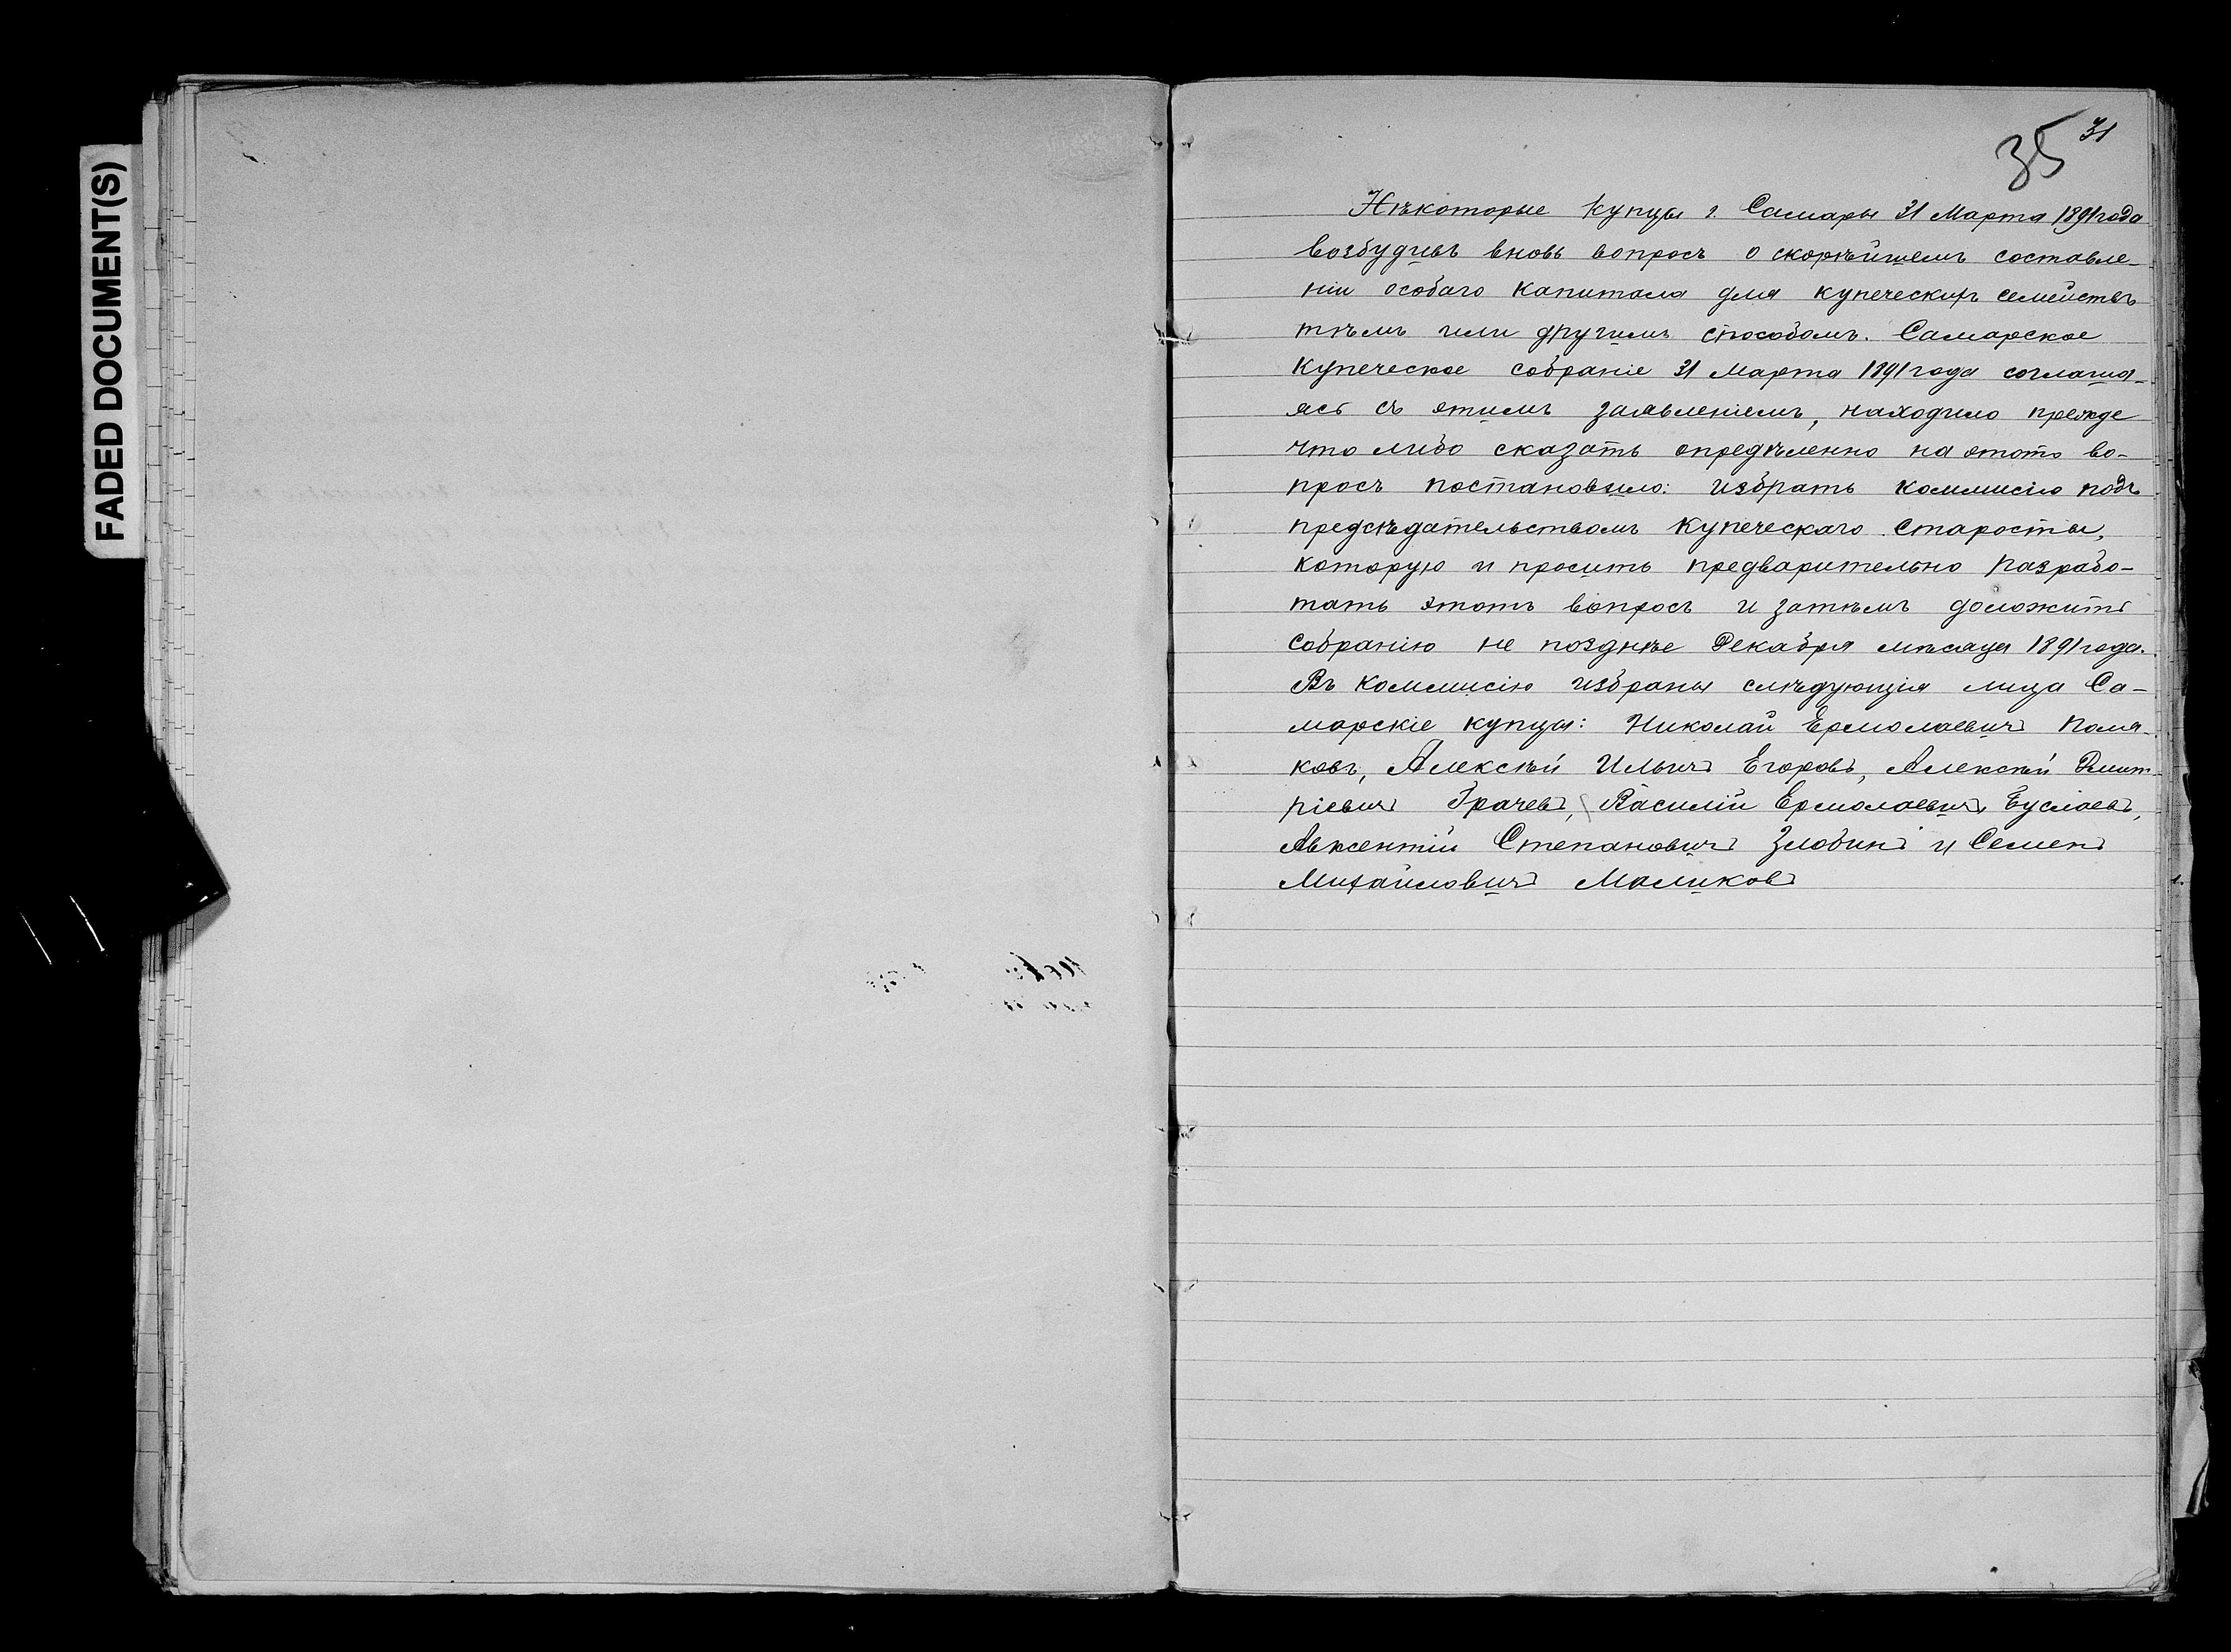 FADED DOCUMENT(S)
35 31
Нѣкоторые купцы г. Самары 31 Марта 1891 года
возбудивъ вновь вопросъ о скорѣйшемъ составле-
ніи особаго капитала для купеческихъ семействъ
тѣмъ или другимъ способомъ. Самарское
Купеческое собраніе 31 Марта 1891 года соглаша-
ясь съ этимъ заявленіемъ, находило прежде
что либо сказать опредѣленно на этотъ во-
просъ постановило: избрать коммисію подъ
предсѣдательствомъ Купеческаго Старосты,
которую и просить предварительно разрабо-
тать этотъ вопросъ и затѣмъ доложить
собранію не позднѣе Декабря мѣсяца 1891 года.
Въ коммисію избраны слѣдующія лица Са-
марскіе купцы: Николай Ермолаевичъ Поля-
ковъ, Алексѣй Ильичъ Егоровъ, Алексѣй Дмит-
ріевичъ Грачевъ, Василій Ермолаевичъ Буслаевъ,
Авксентій Степановичъ Злобинъ и Семенъ
Михайловичъ Маликовъ